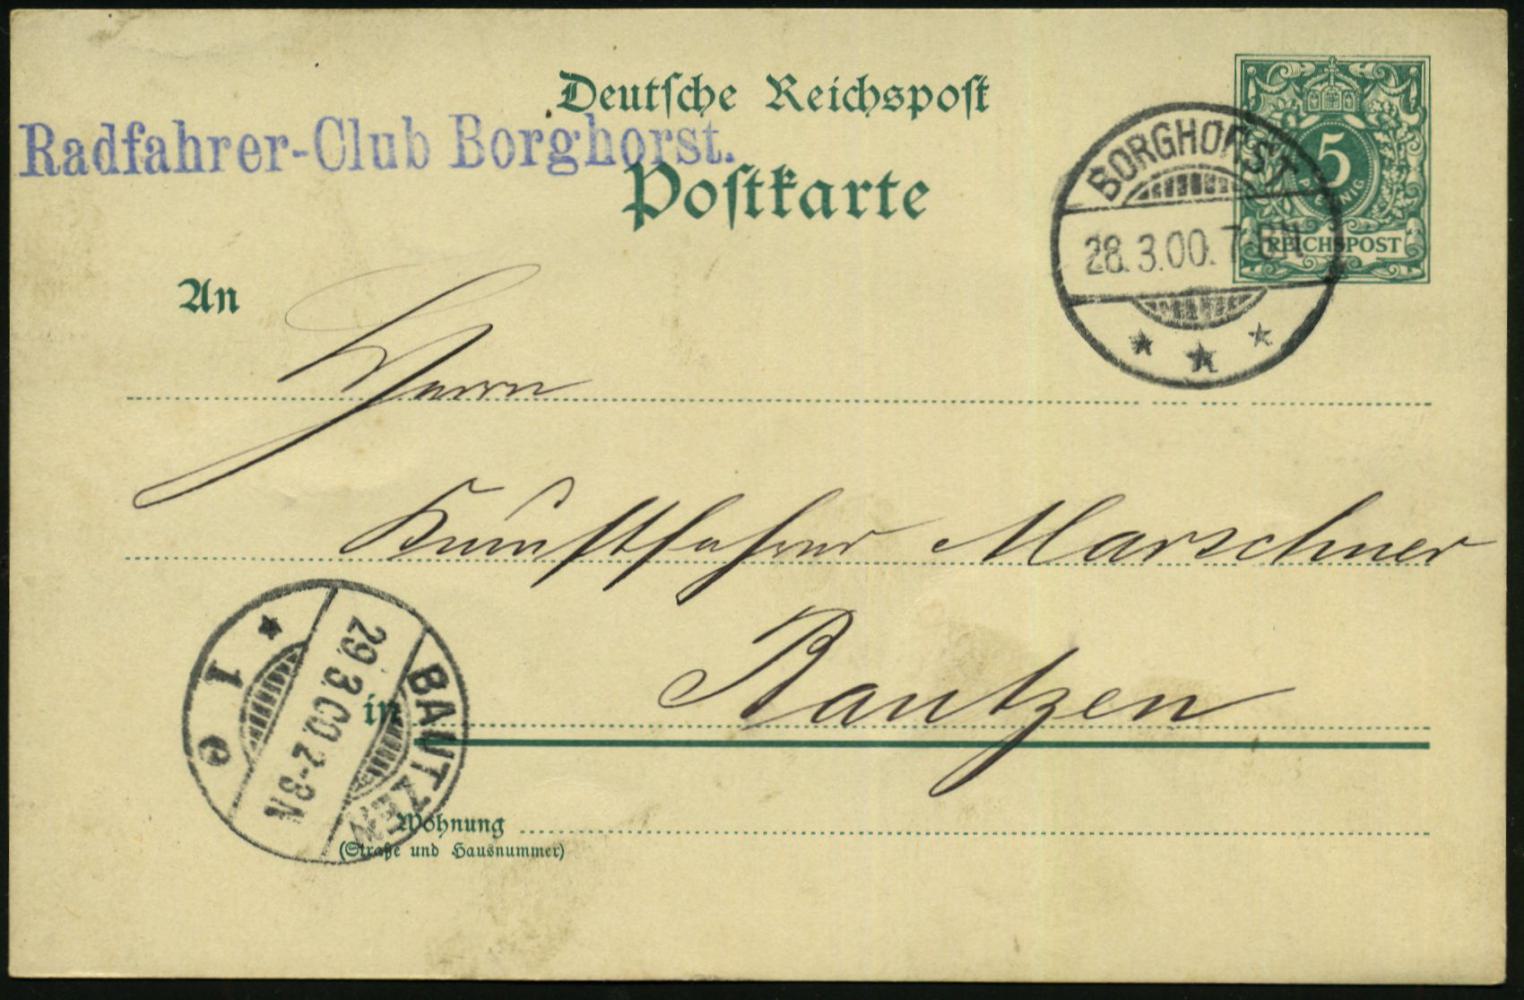 Deutsche Reichspost
Radfahrer-Club Borghorst.
Postkarte
5
REICHSPOST
BORGHORST
28.3.00. 7
An
Herrn
Kunstfahrer Marschner
Bautzen
in
BAUTZEN
29.3.00. 2-3N
1 e
Wohnung
(Straße und Hausnummer)